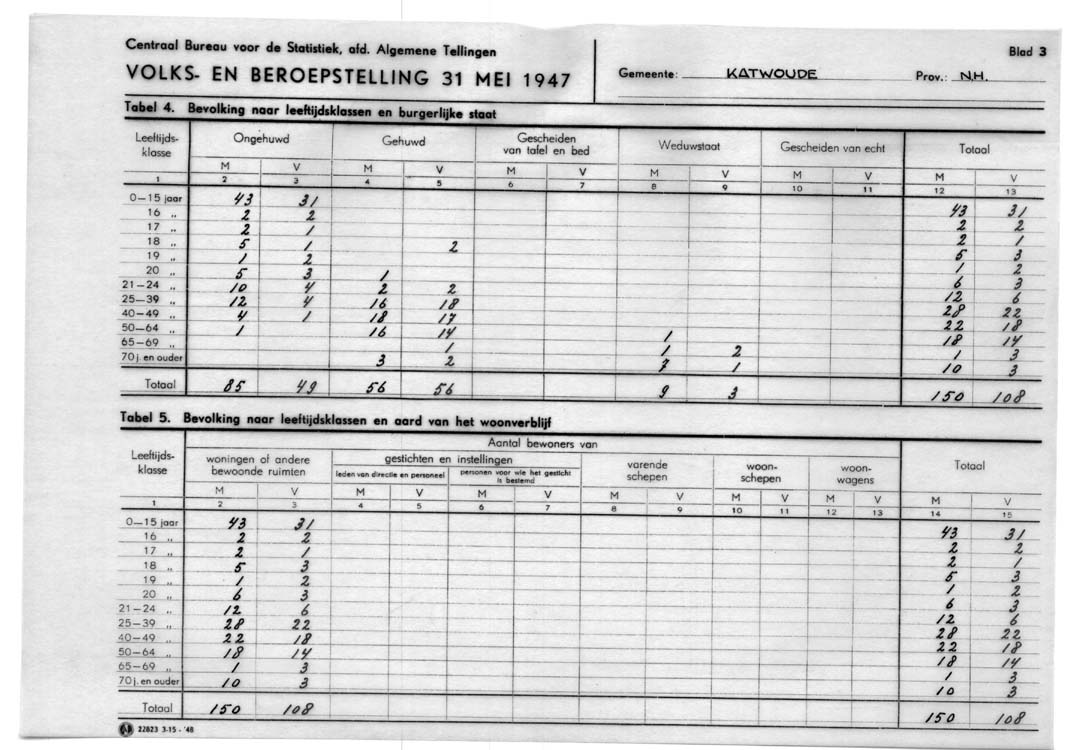 Centraal Bureau voor de Statistiek, afd. Algemene Tellingen
VOLKS- EN BEROEPSTELLING 31 MEI 1947
Gemeente: KATWOUDE Prov.: N.H.
Blad 3
Tabel 4. Bevolking naar leeftijdsklassen en burgerlijke staat
Leeftijds-klasse Ongehuwd Gehuwd Gescheiden van tafel en bed Weduwstaat Gescheiden van echt Totaal
M V M V M V M V M V M V
1 2 3 4 5 6 7 8 9 10 11 12 13
0—15 jaar 43 31 43 31
16 „ 2 2 2 2
17 „ 2 1 2 1
18 „ 5 1 2 5 3
19 „ 1 2 1 2
20 „ 5 3 1 6 3
21—24 „ 10 4 2 2 12 6
25—39 „ 12 4 16 18 28 22
40—49 „ 4 1 18 17 22 18
50—64 „ 1 16 14 1 18 14
65—69 „ 1 1 2 1 3
70 j. en ouder 3 2 7 1 10 3
Totaal 85 49 56 56 9 3 150 108
Tabel 5. Bevolking naar leeftijdsklassen en aard van het woonverblijf
Aantal bewoners van
Leeftijds-klasse woningen of andere bewoonde ruimten gestichten en instellingen varende schepen woon-schepen woon-wagens Totaal
leden van directie en personeel personen voor wie het gesticht is bestemd
M V M V M V M V M V M V M V
1 2 3 4 5 6 7 8 9 10 11 12 13 14 15
0—15 jaar 43 31 43 31
16 „ 2 2 2 2
17 „ 2 1 2 1
18 „ 5 3 5 3
19 „ 1 2 1 2
20 „ 6 3 6 3
21—24 „ 12 6 12 6
25—39 „ 28 22 28 22
40—49 „ 22 18 22 18
50—64 „ 18 14 18 14
65—69 „ 1 3 1 3
70 j. en ouder 10 3 10 3
Totaal 150 108 150 108
22823 3-15 - '48